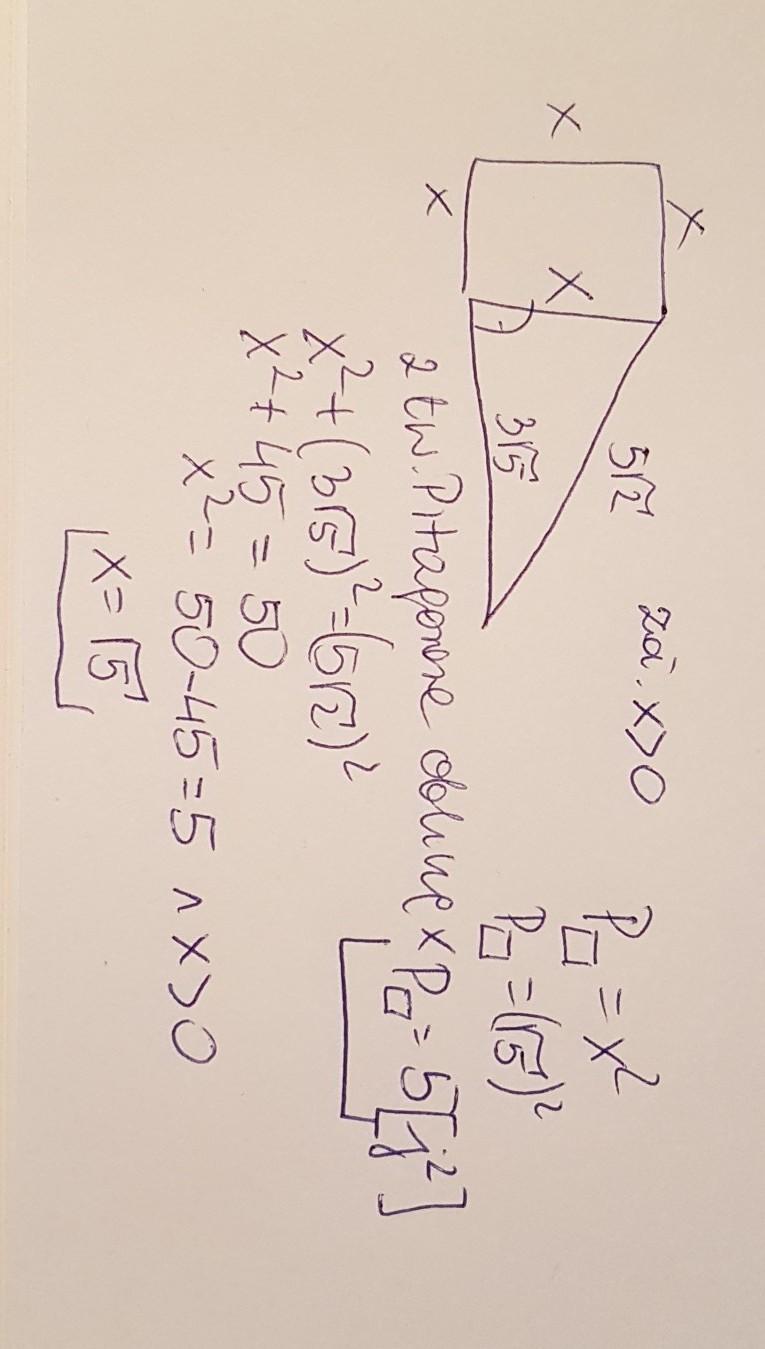 x
x
x
x
5√2
3√5
zał. x>0
z tw. Pitagorasa obliczę x
x² + (3√5)² = (5√2)²
x² + 45 = 50
x² = 50-45 = 5 ∧ x>0
x = √5
P□ = x²
P□ = (√5)²
P□ = 5 [j²]